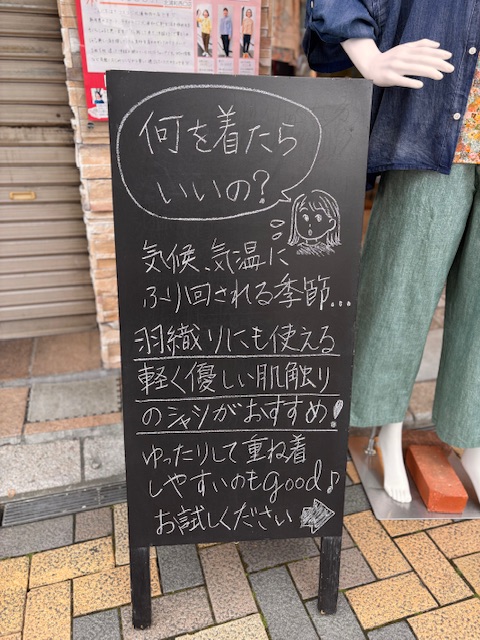 何を着たら
いいの?
気候、気温に
ふり回される季節...
羽織りにも使える
軽く優しい肌触り
のシャツがおすすめ!
ゆったりして重ね着
しやすいのもgood♪
お試しください